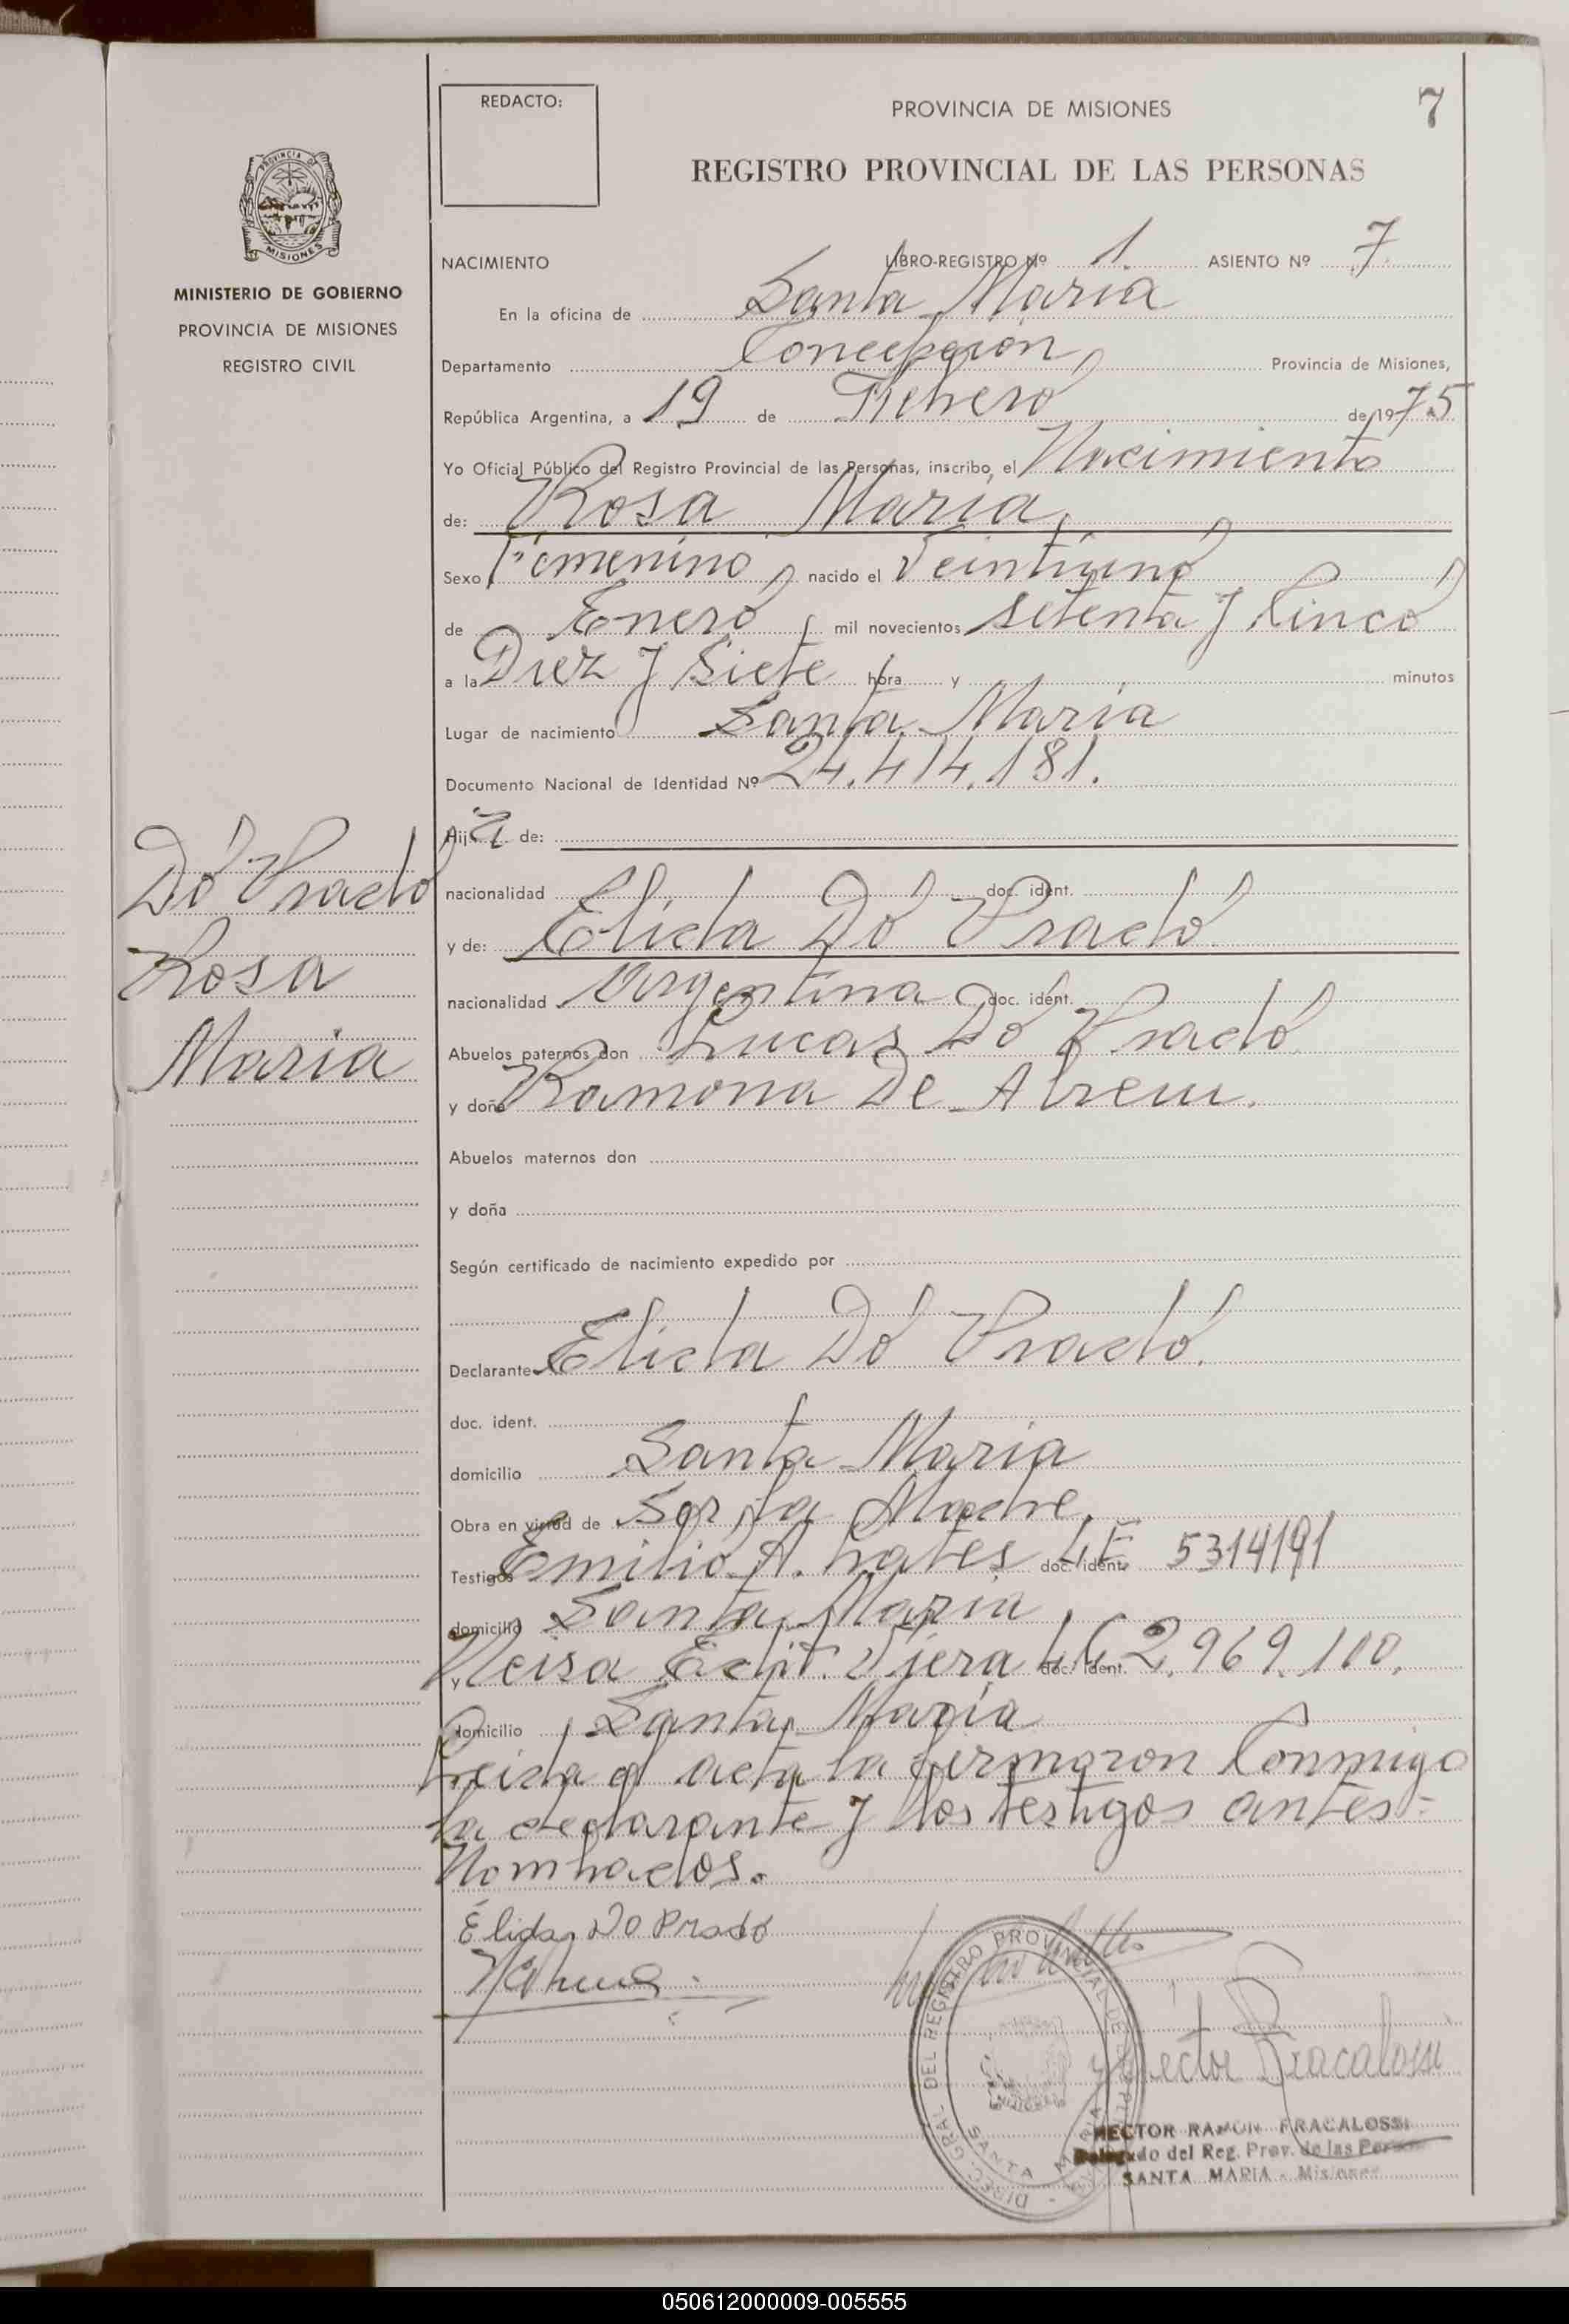 REDACTO:
PROVINCIA DE MISIONES
7
REGISTRO PROVINCIAL DE LAS PERSONAS
PROVINCIA DE
MISIONES
MINISTERIO DE GOBIERNO
PROVINCIA DE MISIONES
REGISTRO CIVIL
NACIMIENTO LIBRO-REGISTRO Nº 1 ASIENTO Nº 7
En la oficina de Santa María
Departamento Concepción, Provincia de Misiones,
República Argentina, a 19 de Febreró de 1975
Yo Oficial Público del Registro Provincial de las Personas, inscribo, el Nacimiento
de: Rosa María,
Sexo Femenino, nacido el Veintiunó
de Eneró, mil novecientos setenta y Cincó
a la Diez y Siete hora y minutos
Lugar de nacimiento Santa María
Documento Nacional de Identidad Nº 24.414.181.
Hija de:
nacionalidad doc. ident.
y de: Elida Dó Pradó
nacionalidad Argentina doc. ident.
Abuelos paternos don Lucas Dó Pradó
y doña Ramona De Abreu.
Abuelos maternos don
y doña
Según certificado de nacimiento expedido por
Declarante Elida Dó Pradó.
doc. ident.
domicilio Santa María
Obra en virtud de Ser la Madre,
Testigos Emilió A. doc. ident. LE 5314191
domicilio Santa María
y Neisa Edit. Viera doc. ident. LC 2.969.100.
domicilio Santa María
Leida el acta la firmaron Conmigo
la declarante y los testigos antes-
Nombrados.
Dó Pradó
Rosa
Maria
Élida Do Pradó
Héctor Fracalossi
DIREC. GRAL. DEL REGISTRO PROVINCIAL DE LAS PERSONAS
SANTA MARIA
MISIONES
HECTOR RAMON FRACALOSSI
Delegado del Reg. Prov. de las Personas
SANTA MARIA - Misiones
050612000009-005555